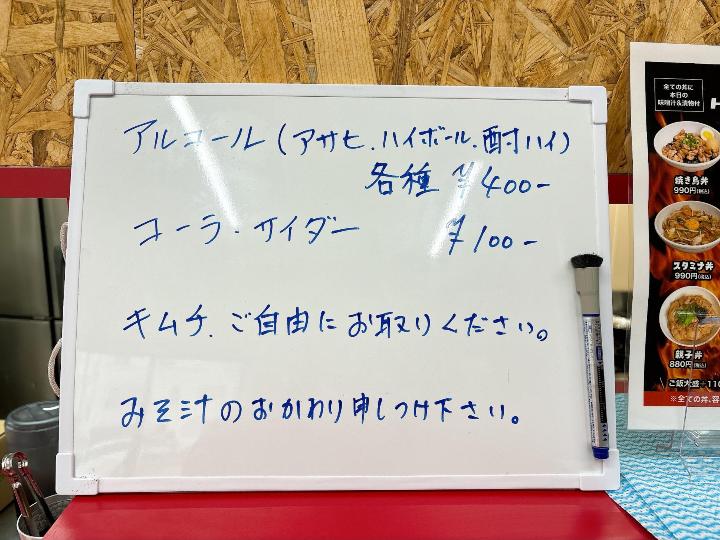 アルコール(アサヒ.ハイボール.酎ハイ)
各種 ¥400-
コーラ・サイダー ¥100-
キムチ.ご自由にお取りください。
みそ汁のおかわり申しつけ下さい。
全ての丼に
本日の
味噌汁&漬物付
焼き鳥丼
990円(税込)
スタミナ丼
990円(税込)
親子丼
880円(税込)
\ご飯大盛+110
※全ての丼、容